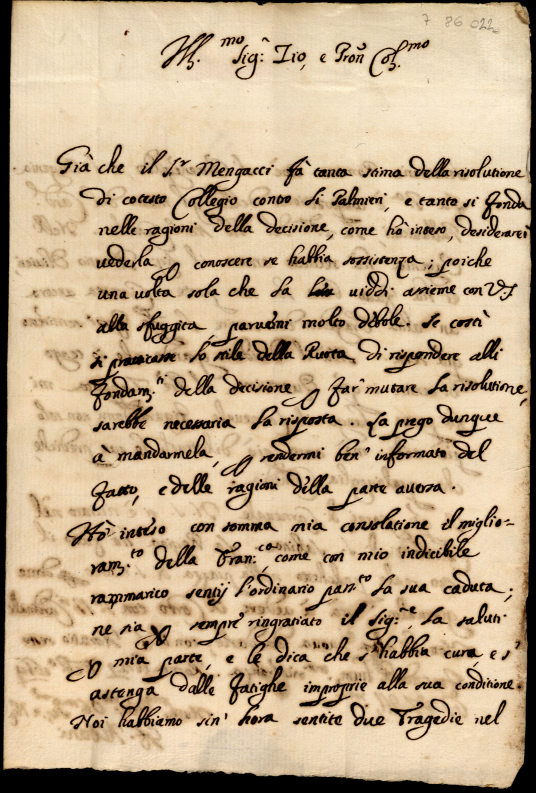 7 86 022
Ill.mo Sig.r Zio, e Pron Col.mo
Già che il S.r Mengacci fà tanta stima della risolutione
di cotesto Collegio contro li Palmieri, e tanto si fonda
nelle ragioni della decisione, come hò inteso, desiderarei
vederla, conoscere se habbia sossistenza; poiche
una volta sola che la viddi assieme con VS
alla sfuggita parvemi molto debole. Se costì
si praticasse lo stile della Ruota, di rispondere alli
fondam.ti della decisione, far mutare la risolutione,
sarebbe necessaria la risposta. La prego dunque
à mandarmela, rendermi ben informato del
fatto, e delle ragioni della parte aversa.
Hò inteso con somma mia consolatione il miglio-
ram.to della Fran.ca, come con mio indicibile
rammarico sentij l'ordinario pas.to la sua caduta;
ne sia sempre ringratiato il Sig.re, la saluti
mia parte, e le dica che s'habbia cura, e s'
astenga dalle fatighe improprie alla sua conditione.
Noi habbiamo sin' hora sentite due Tragedie nel